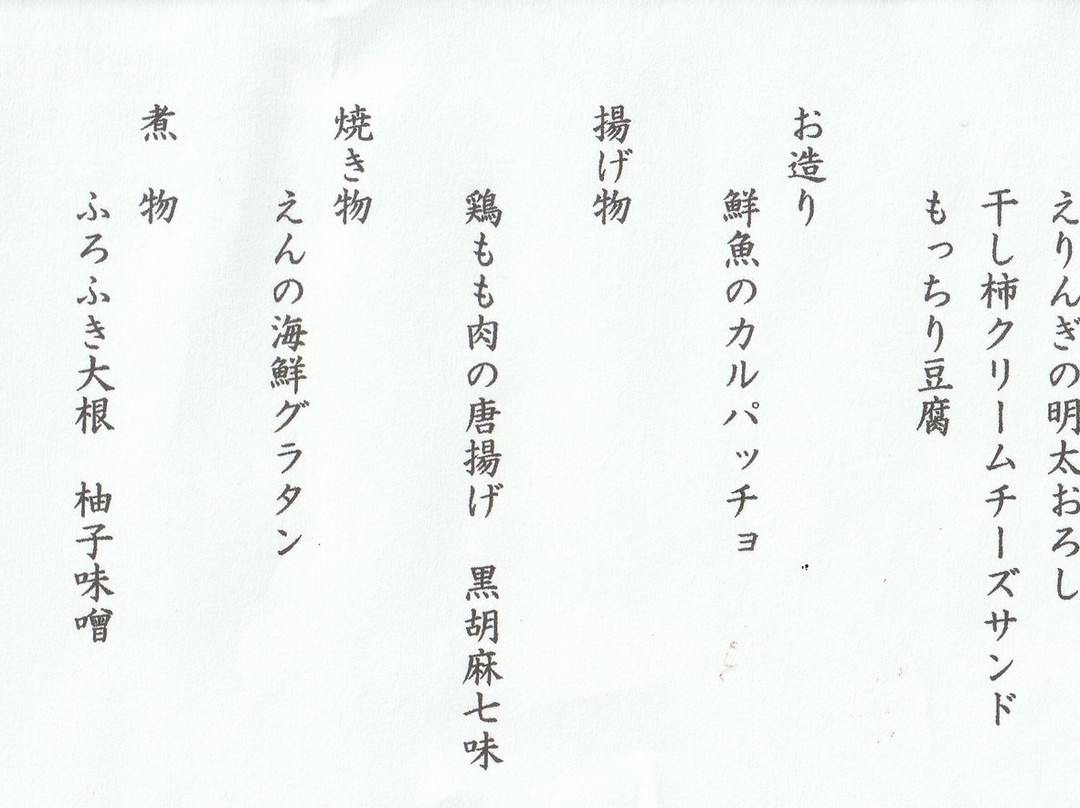 えりんぎの明太おろし
干し柿クリームチーズサンド
もっちり豆腐
お造り
鮮魚のカルパッチョ
揚げ物
鶏もも肉の唐揚げ　黒胡麻七味
焼き物
えんの海鮮グラタン
煮　物
ふろふき大根　柚子味噌